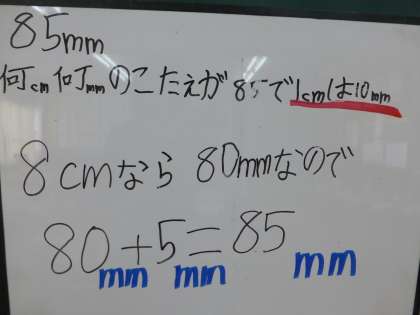 85mm
何cm何mmのこたえが85で1cmは10mm
8cmなら 80mmなので
80mm+5mm=85mm